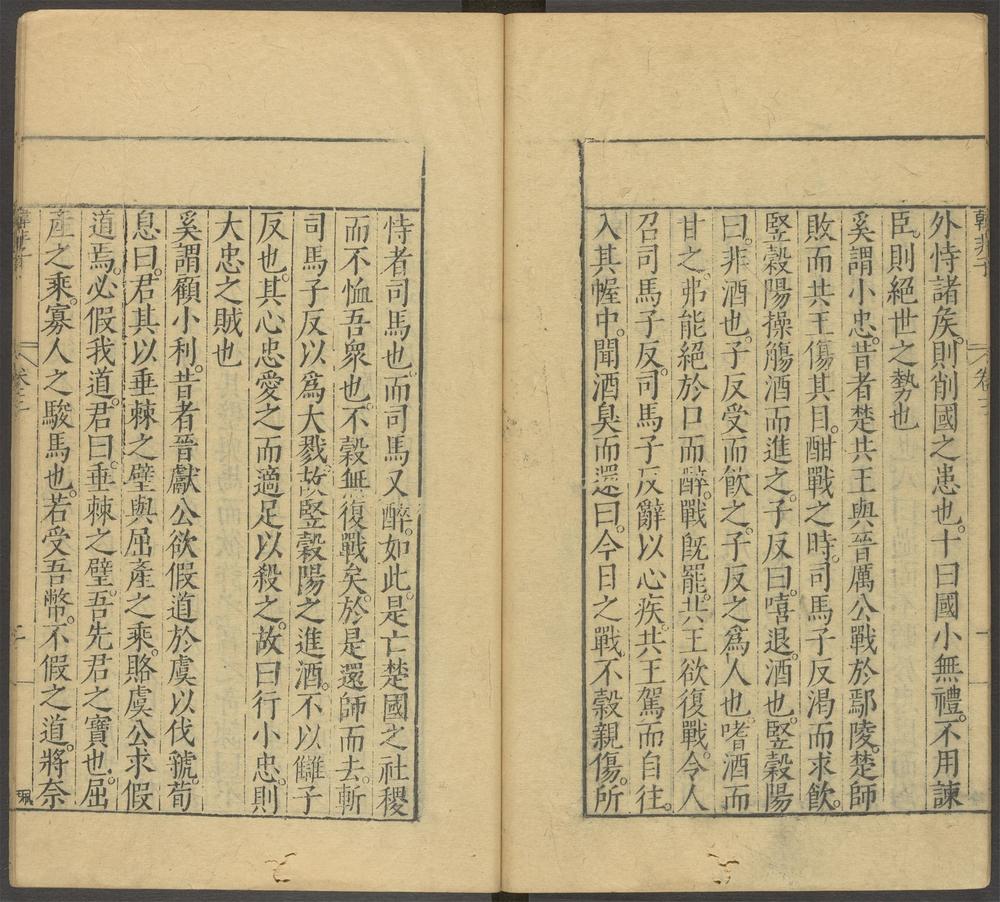 韓非子 卷三
外恃諸矦。則削國之患也。十曰國小無禮。不用諫
臣。則絕世之勢也
奚謂小忠。昔者楚共王與晉厲公戰於鄢陵。楚師
敗而共王傷其目。酣戰之時。司馬子反渴而求飲。
竪穀陽操觴酒而進之。子反曰。嘻退。酒也。竪穀陽
曰。非酒也。子反受而飲之。子反之爲人也。嗜酒而
甘之。弗能絕於口而醉。戰旣罷。共王欲復戰。令人
召司馬子反。司馬子反辭以心疾。共王駕而自往。
入其幄中。聞酒臭而還曰。今日之戰。不穀親傷。所
恃者司馬也。而司馬又醉。如此。是亡楚國之社稷
而不恤吾衆也。不穀無復戰矣。於是還師而去。斬
司馬子反以爲大戮。故竪穀陽之進酒。不以讎子
反也。其心忠愛之而適足以殺之。故曰行小忠。則
大忠之賊也
奚謂顧小利。昔者晉獻公欲假道於虞以伐虢。荀
息曰。君其以垂棘之璧與屈產之乘。賂虞公求假
道焉。必假我道。君曰。垂棘之璧。吾先君之寶也。屈
產之乘。寡人之駿馬也。若受吾幣。不假之道。將奈